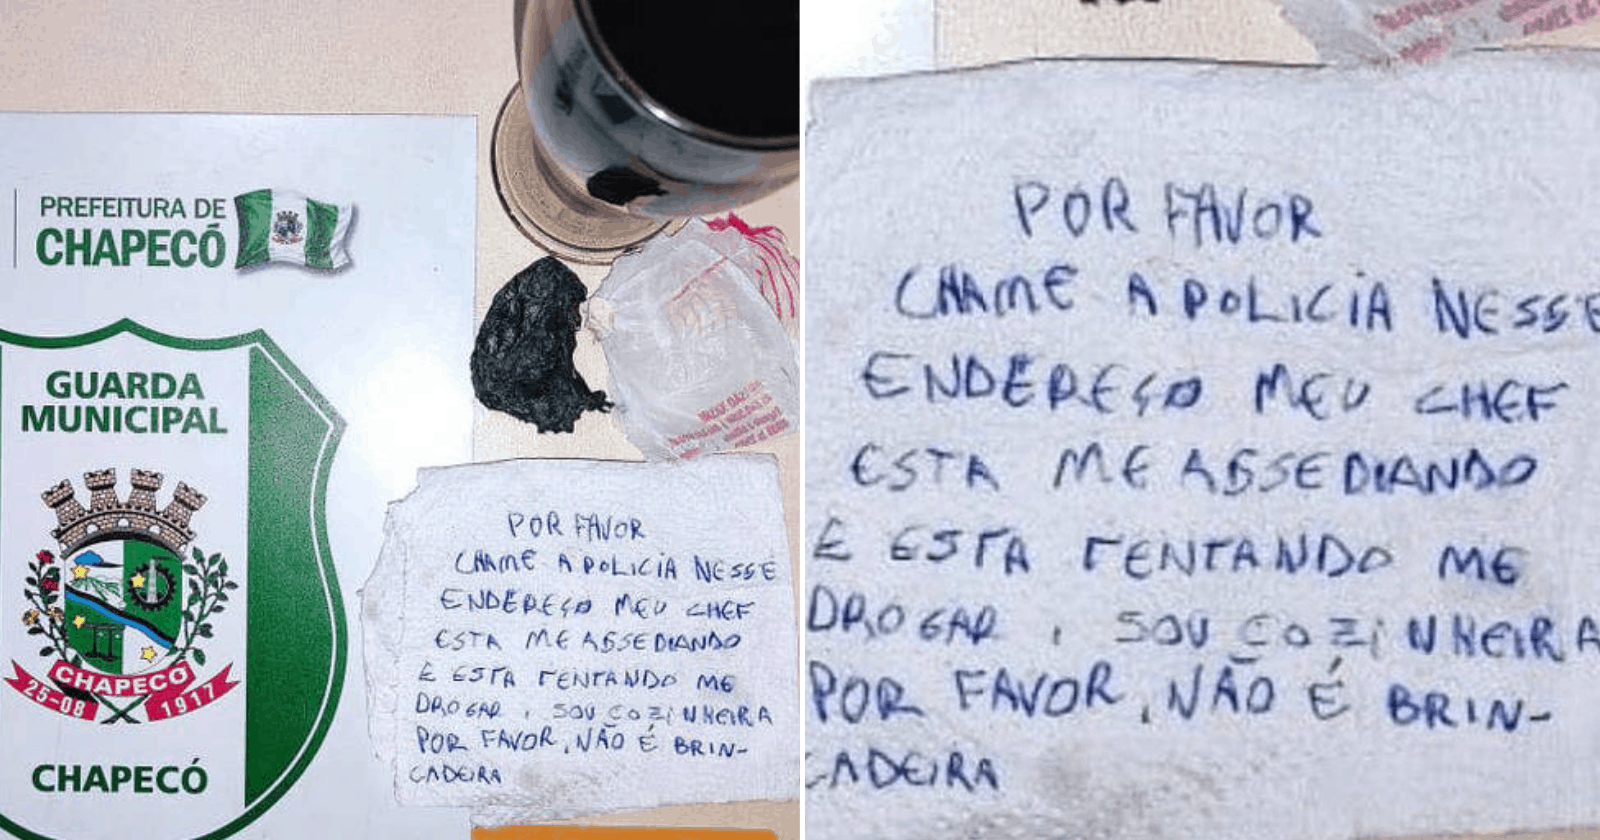 PREFEITURA DE
CHAPECÓ
GUARDA
MUNICIPAL
CHAPECÓ
25-08 1917
CHAPECÓ
POR FAVOR
CHAME A POLICIA NESSE
ENDEREÇO MEU CHEF
ESTA ME ASSEDIANDO
E ESTA TENTANDO ME
DROGAR, SOU COZINHEIRA
POR FAVOR, NÃO É BRIN-
CADEIRA
POR FAVOR
CHAME A POLICIA NESSE
ENDEREÇO MEU CHEF
ESTA ME ASSEDIANDO
E ESTA TENTANDO ME
DROGAR, SOU COZINHEIRA
POR FAVOR, NÃO É BRIN-
CADEIRA